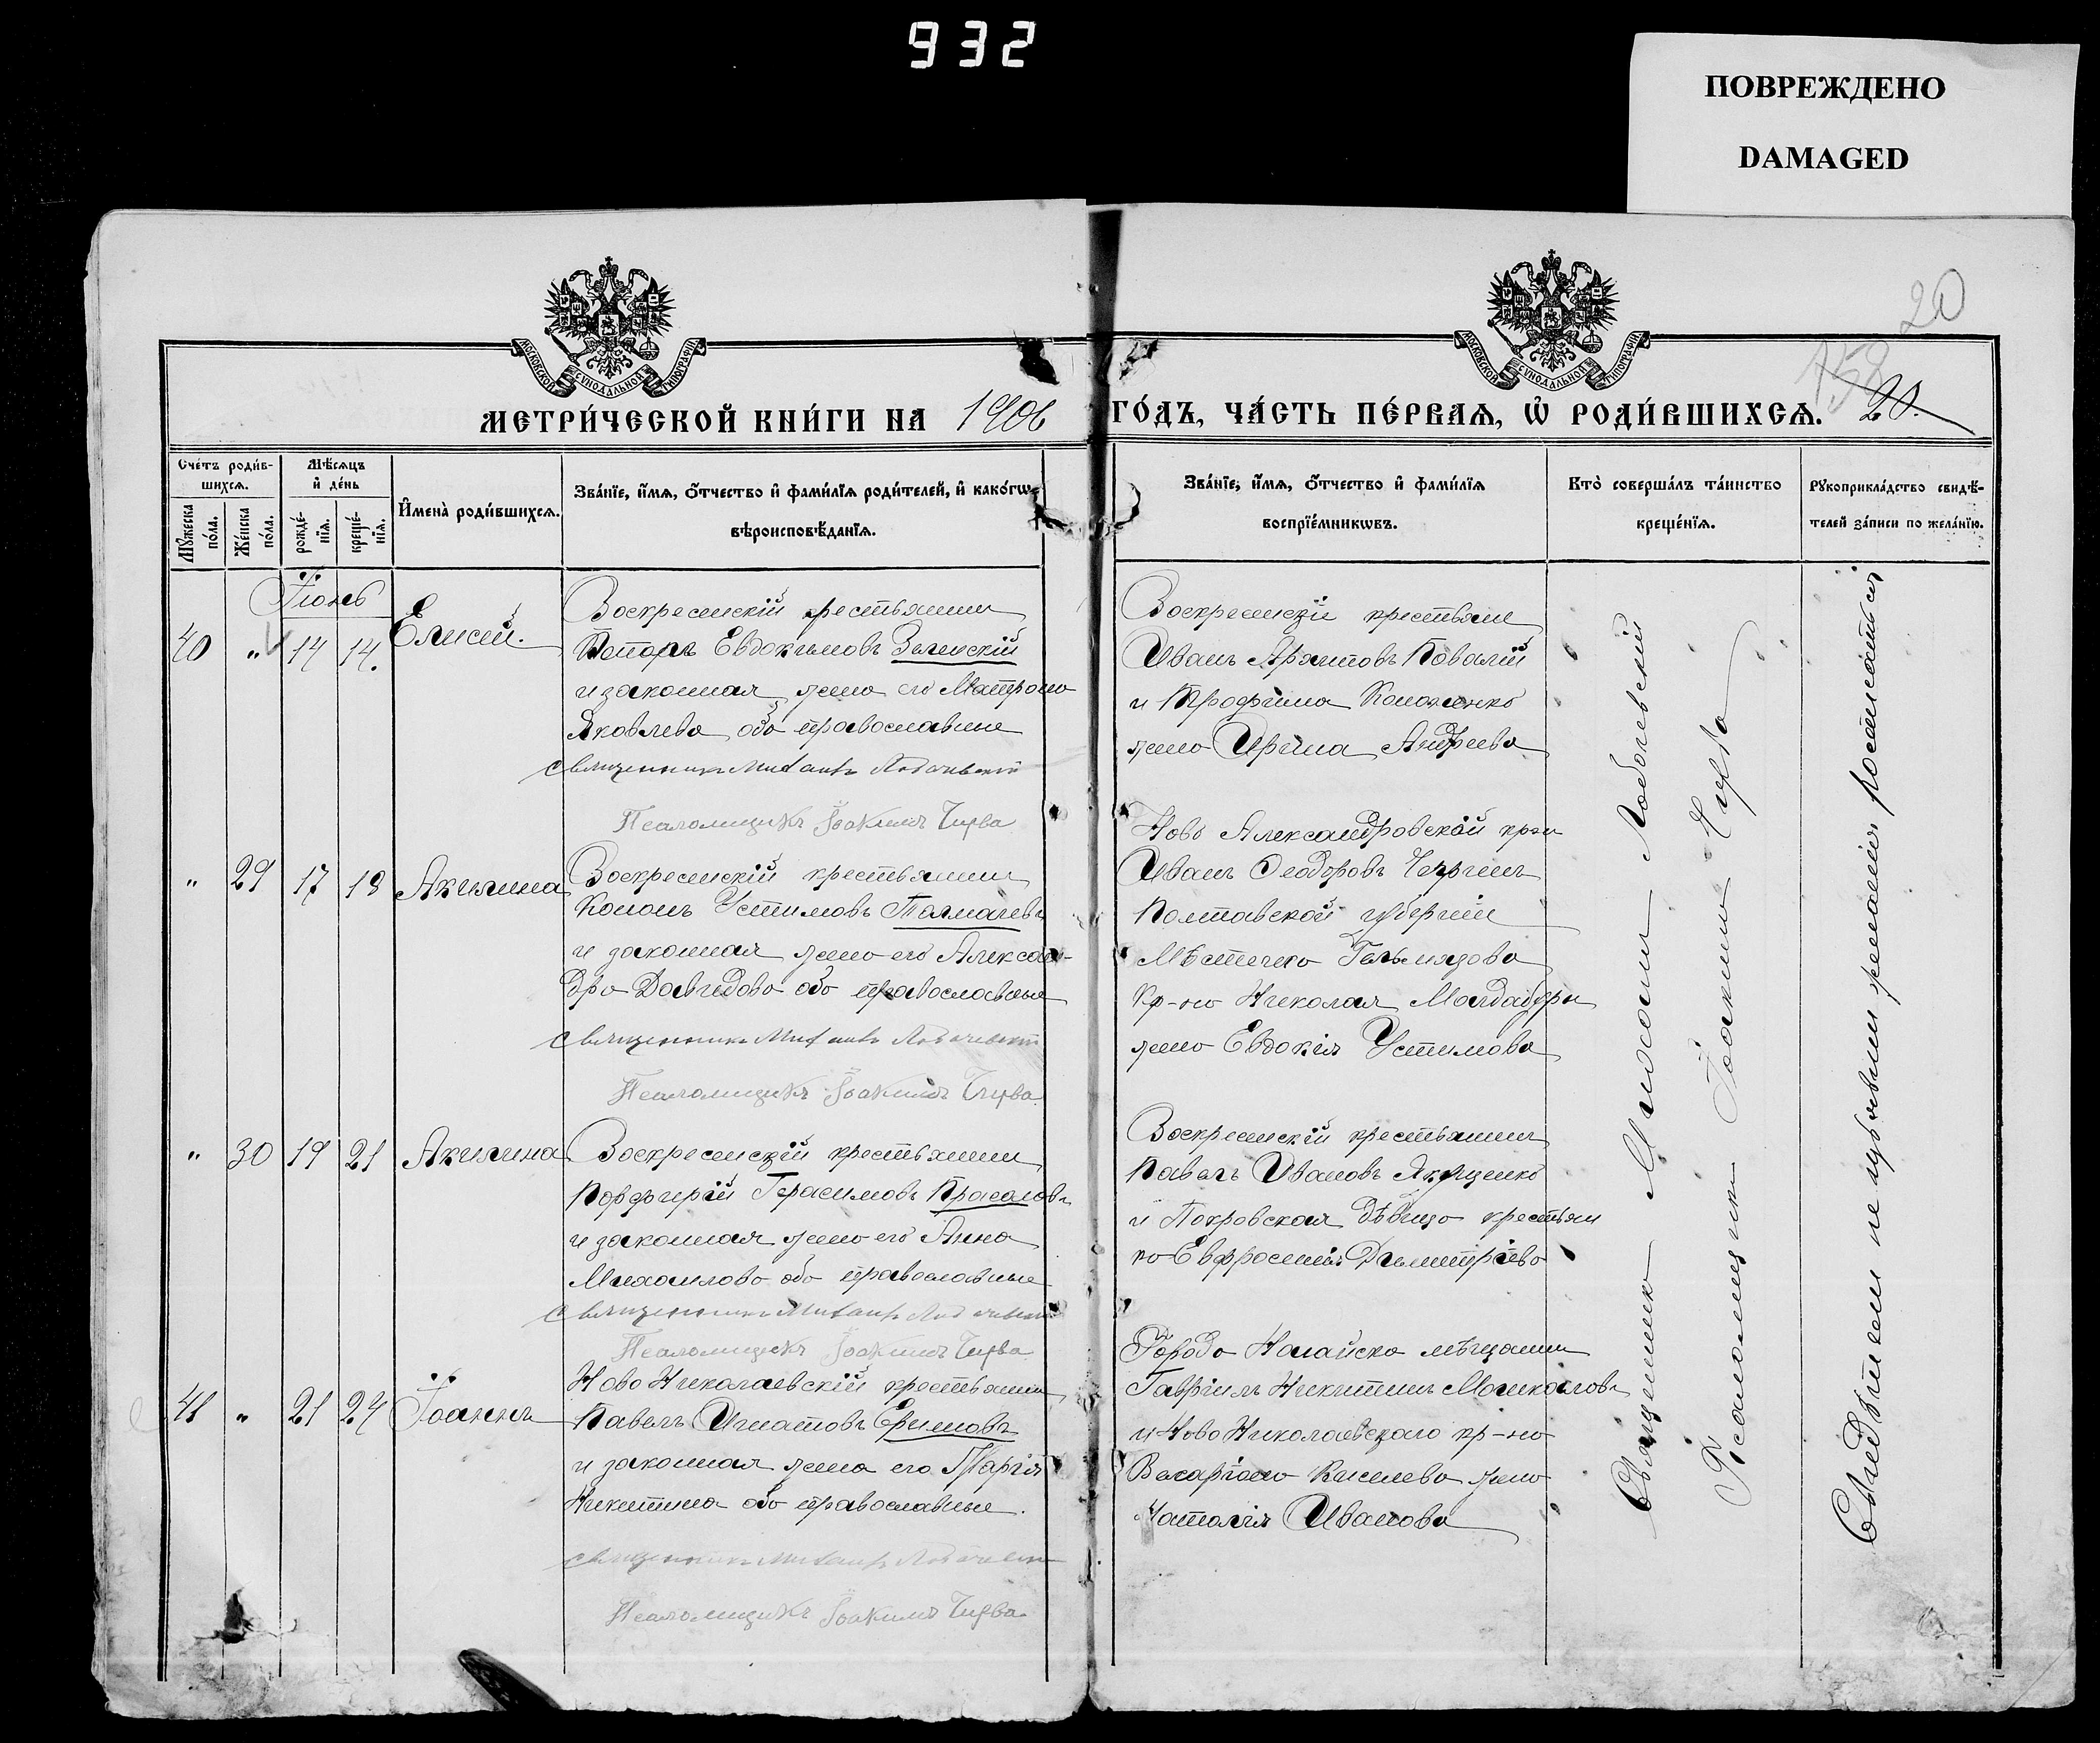 932
ПОВРЕЖДЕНО
DAMAGED
20
158
20.
МОСКОВСКОЙ СѴНОДАЛЬНОЙ ТИПОГРАФІИ
МОСКОВСКОЙ СѴНОДАЛЬНОЙ ТИПОГРАФІИ
МЕТРИ́ЧЕСКОЙ КНИ́ГИ НА 1906 ГО́ДЪ, ЧА́СТЬ ПЕ́РВАѦ, Ѽ РОДИ́ВШИХСѦ.
Сче́тъ роди́вшихсѧ.
Мꙋжеска по́ла.
Же́нска по́ла.
Мѣ́сѧцъ и҆ де́нь
рожде́нїѧ.
креще́нїѧ.
И҆мена̀ роди́вшихсѧ.
Зва́нїе, и҆́мѧ, ѻ҆́тчество и҆ фами́лїѧ роди́телей, и҆ како́гѡ
вѣроисповѣ́данїѧ.
Зва́нїе, и҆́мѧ, ѻ҆́тчество и҆ фами́лїѧ
воспрїе́мникѡвъ.
Кто̀ соверша́лъ та́инство
креще́нїѧ.
Рꙋкоприкла́дство свидѣ́-
телей за́писи по жела́нїю.
Іюнь
40 " 14 14. Елисей.
Воскресенскій крестьянинъ
Несторъ Евдокимовъ Зеленскій
и законная жена его Матрона
Яковлева, оба православные
Священникъ Михаилъ Лобачевскій
Псаломщикъ Іоакимъ Чирва
Воскресенскіе крестьяне
Иванъ Архиповъ Ковалій
и Трофима Кононенко
жена Ирина Андреева
" 29 17 18 Акилина
Воскресенскій крестьянинъ
Кононъ Устимовъ Толмачевъ
и законная жена его Алексан-
дра Давидова оба православные
Священникъ Михаилъ Лобачевскій
Псаломщикъ Іоакимъ Чирва
Ново Александровской кр-нъ
Иванъ Ѳеодоровъ
Полтавской губерніи
Мѣстечка Гельмязова
кр-на Николая
жена Евдокія Устимова
" 30 19 21 Акилина
Воскресенскій крестьянинъ
Порфирій Герасимовъ Прасоловъ
и законная жена его Анна
Михаилова оба православные
Священникъ Михаилъ Лобачевскій
Псаломщикъ Іоакимъ Чирва
Воскресенскій крестьянинъ
Павелъ Ивановъ Якущенко
и Покровская дѣвица крестьян
ка Евфросинія Димитріева
41 " 21 24 Іоаннъ
Ново Николаевскій крестьянинъ
Павелъ Игнатовъ Ефимовъ
и законная жена его Марія
Никитина оба православные.
Священникъ Михаилъ Лобачевскій
Псаломщикъ Іоакимъ Чирва
Города Ногайска мѣщанинъ
Гавріилъ Никитинъ
и Ново Николаевскаго кр-на
Киселева жена
Наталія Иванова
Священникъ Михаилъ Лобачевскій
Псаломщикъ Іоакимъ Чирва
Свидѣтели не изъявили желанія росписаться